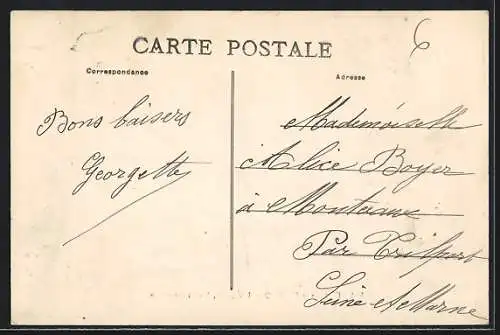 CARTE POSTALE
6
Correspondance
Adresse
Bons baisers
Georgette
Mademoiselle
Alice Boyer
à Montceaux
Par Trilport
Seine et Marne